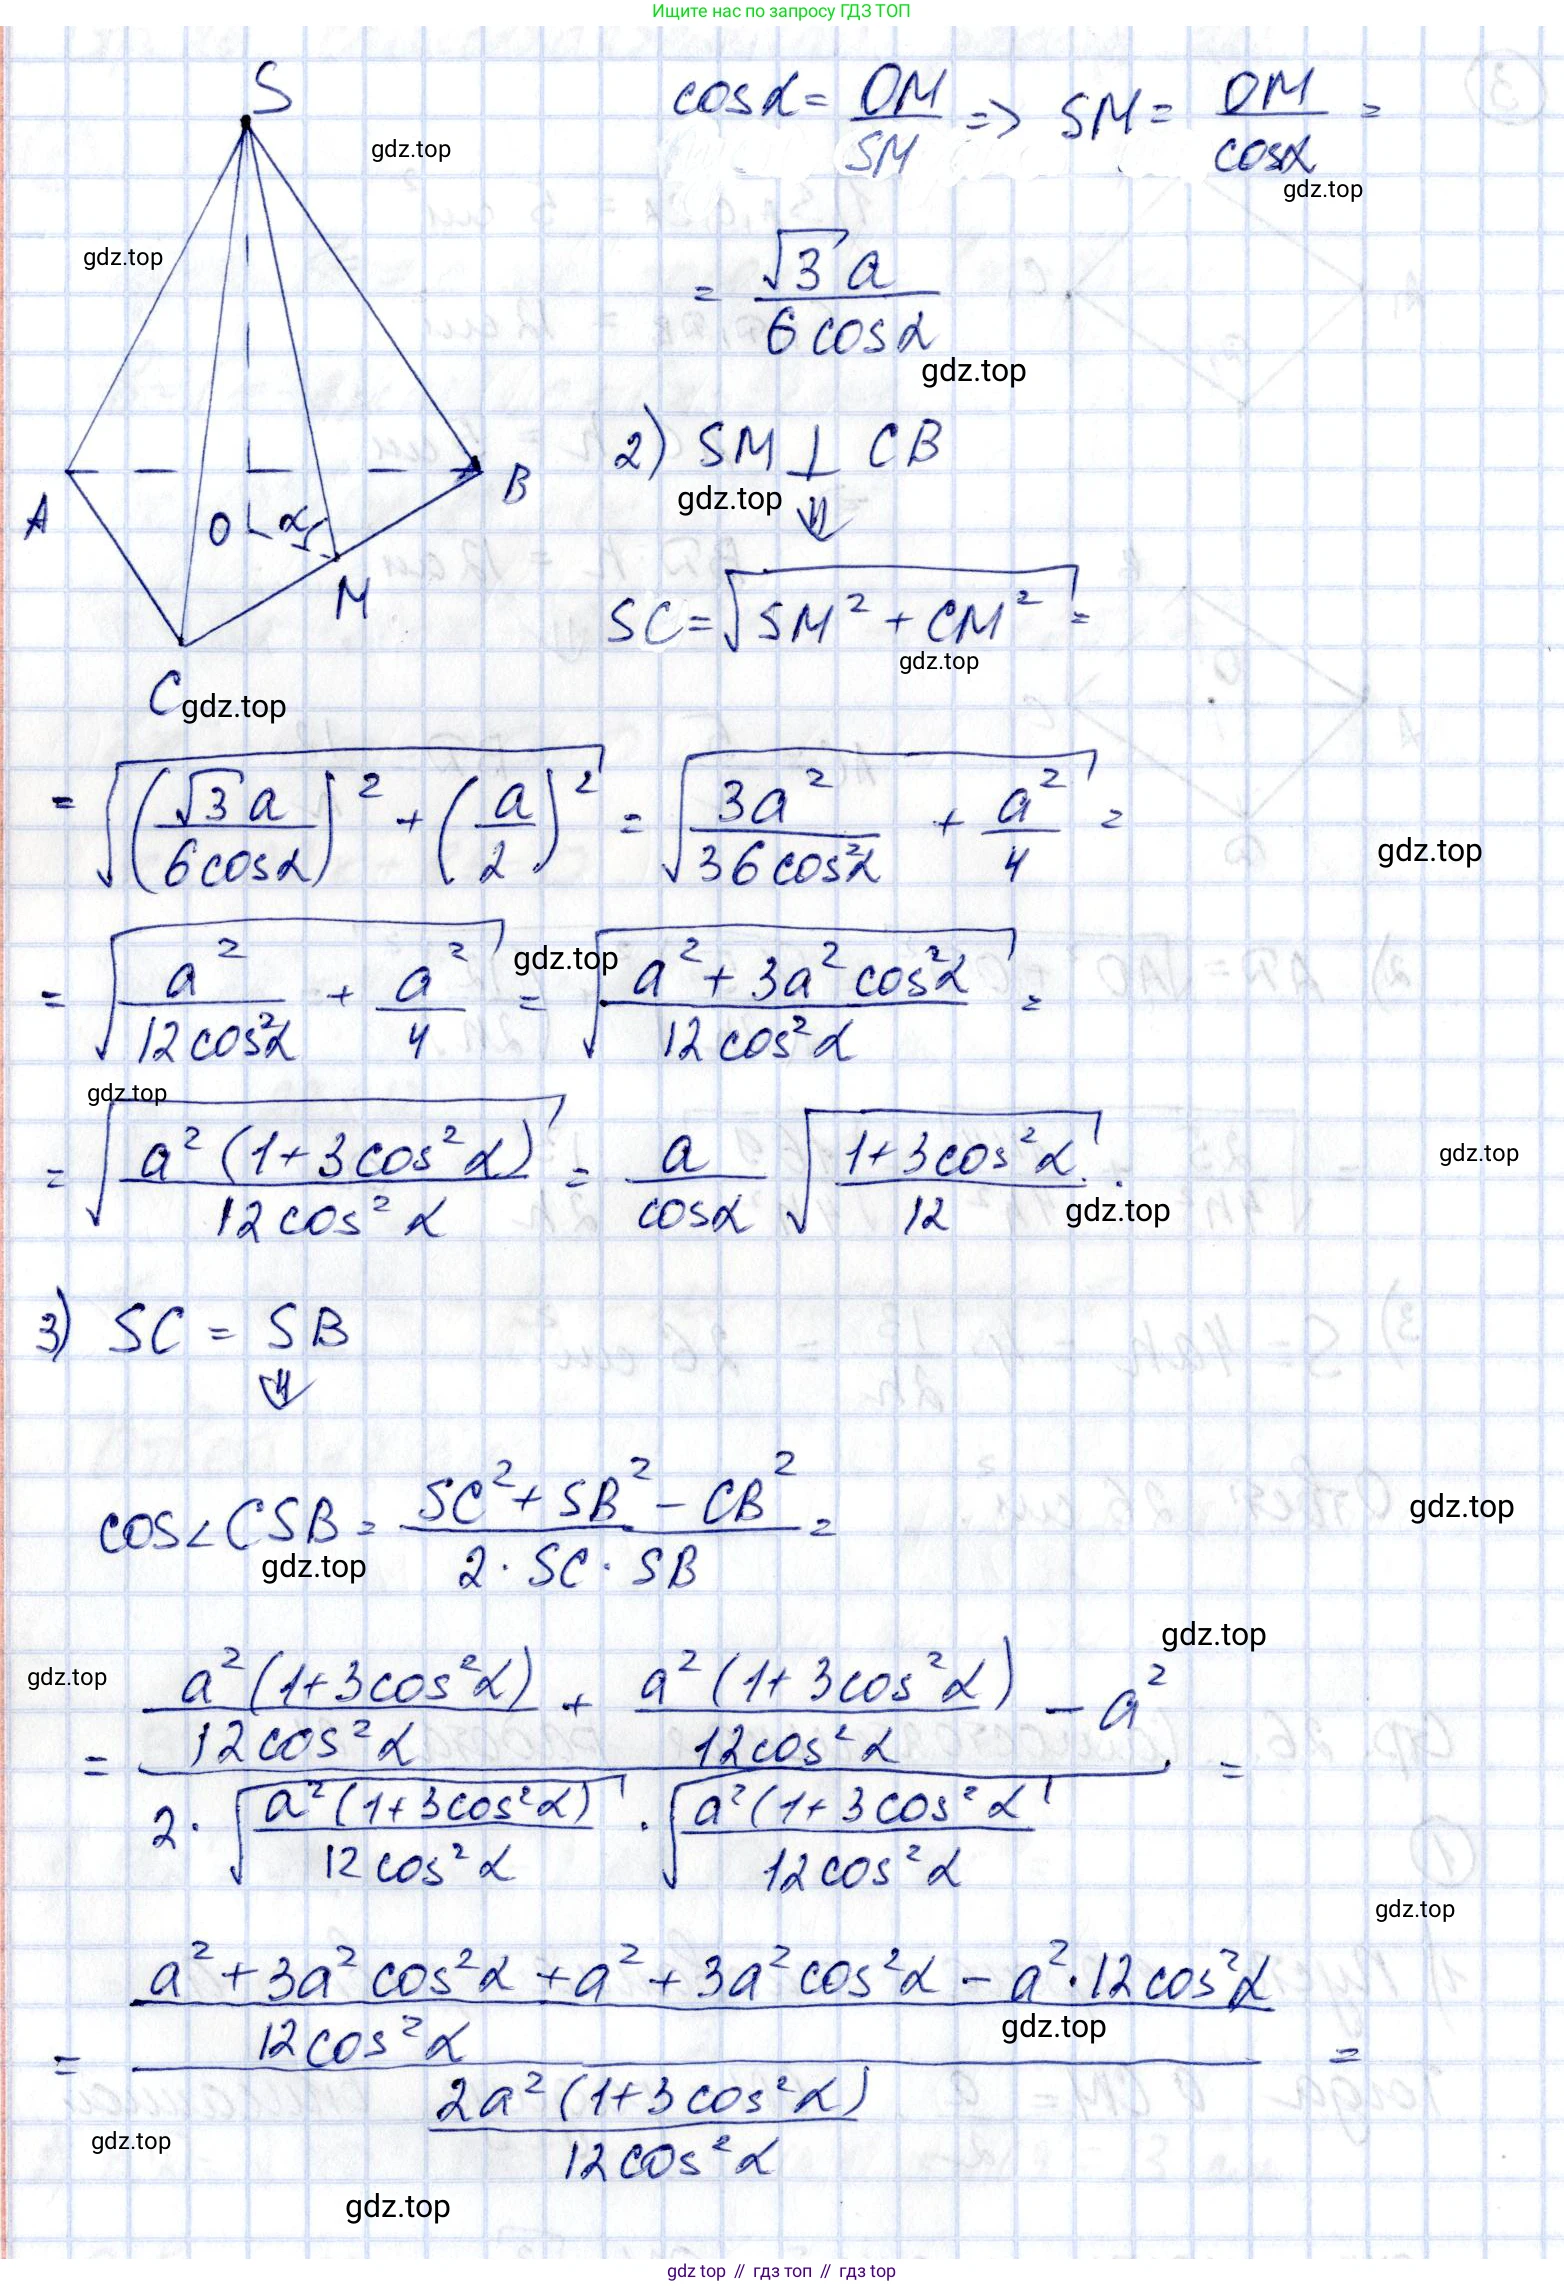 Ищите нас по запросу ГДЗ ТОП
S
gdz.top
cosα = OM/SM => SM = OM/cosα =
gdz.top
gdz.top
= √3 a / 6 cosα
gdz.top
2) SM ⊥ CB
gdz.top
⇓
A
O
α
B
M
C
gdz.top
SC = √(SM² + CM²) =
gdz.top
= √((√3 a / 6cosα)² + (a/2)²) = √(3a² / 36cos²α + a²/4) =
gdz.top
= √(a² / 12cos²α + a²/4) = √((a² + 3a² cos²α) / 12cos²α) =
gdz.top
gdz.top
= √(a² (1+3cos²α) / 12cos²α) = a/cosα √((1+3cos²α) / 12).
gdz.top
gdz.top
3) SC = SB
⇓
cos∠CSB = (SC² + SB² − CB²) / (2 · SC · SB) =
gdz.top
gdz.top
gdz.top
gdz.top
= (a²(1+3cos²α) / 12cos²α + a²(1+3cos²α) / 12cos²α − a²) / (2 · √(a²(1+3cos²α) / 12cos²α) · √(a²(1+3cos²α) / 12cos²α)) =
gdz.top
= ((a² + 3a² cos²α + a² + 3a² cos²α − a² · 12cos²α) / 12cos²α) / (2a² (1+3cos²α) / 12cos²α) =
gdz.top
gdz.top
gdz.top
gdz top // гдз топ // гдз top